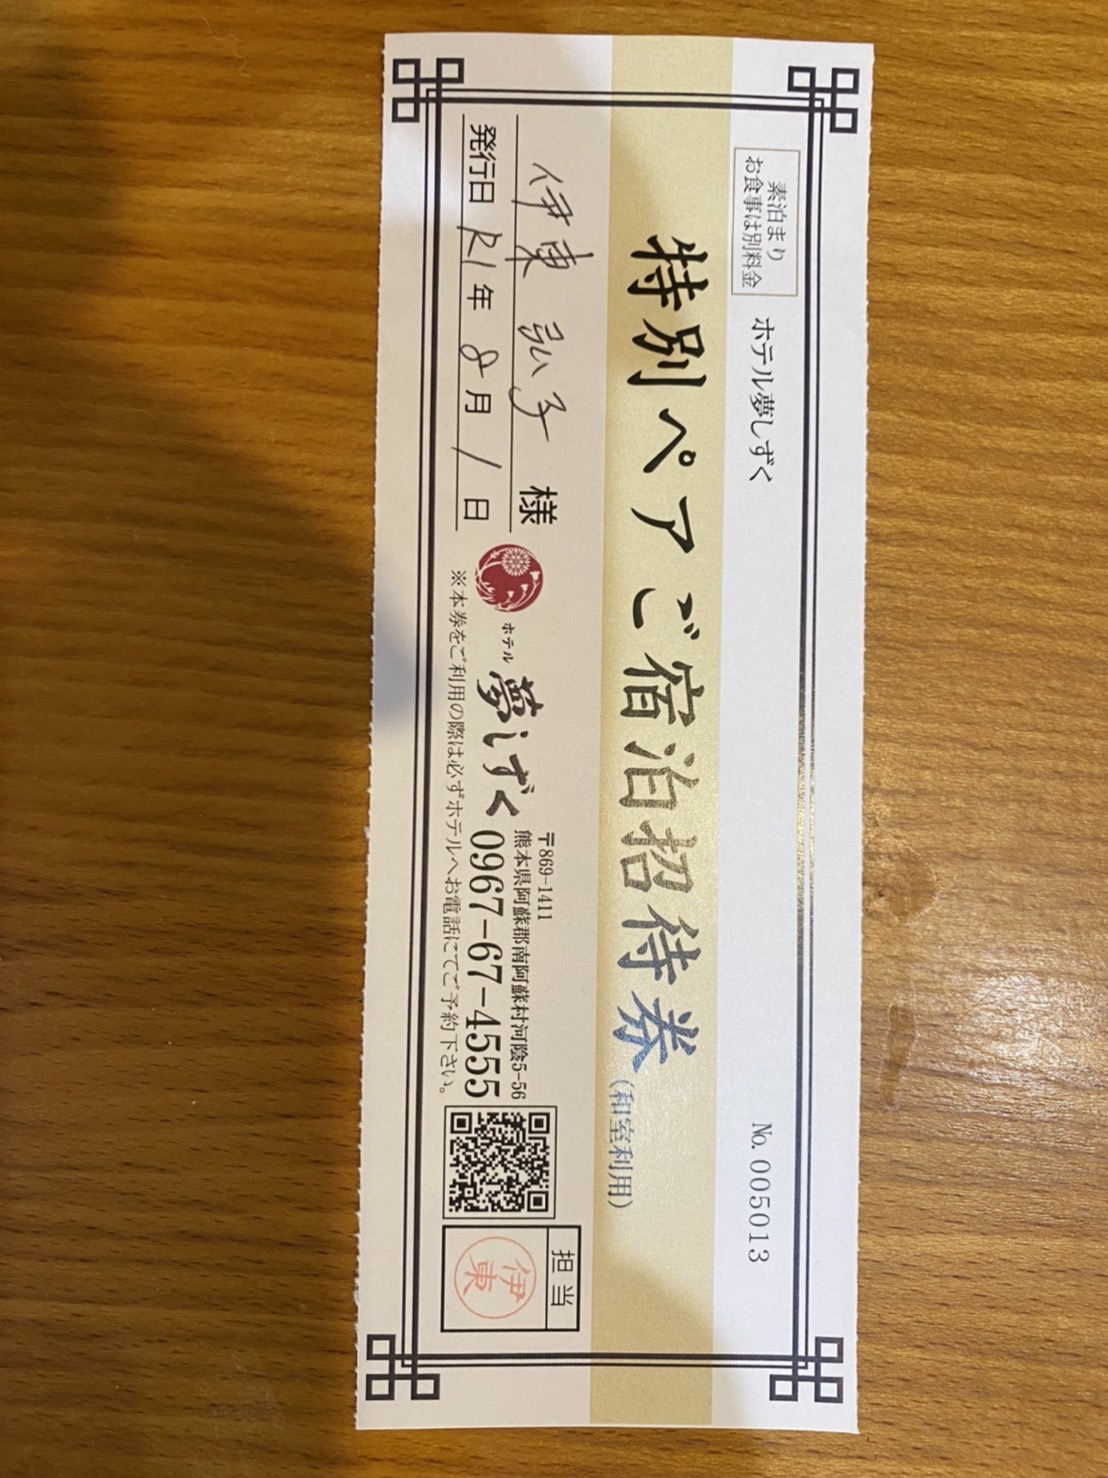 素泊まり
お食事は別料金
ホテル夢しずく
No. 005013
特別ペアご宿泊招待券(和室利用)
伊東 弘子 様
発行日 R1年 8月 1日
ホテル 夢しずく
〒869-1411
熊本県阿蘇郡南阿蘇村河陰5-56
0967-67-4555
※本券をご利用の際は必ずホテルへお電話にてご予約下さい。
担当
伊東